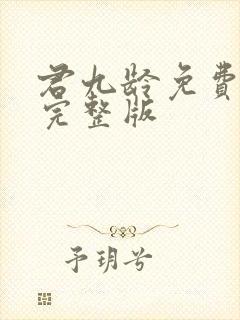 君九龄免費
完整版
予玥兮